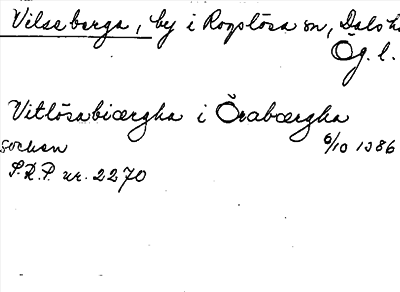 Vilseberga, by i Rogslösa sn, Dals h
Ög. l.
Vitlösabiærgha i Örabærgha
socken 6/10 1386
S.R.P. nr. 2270